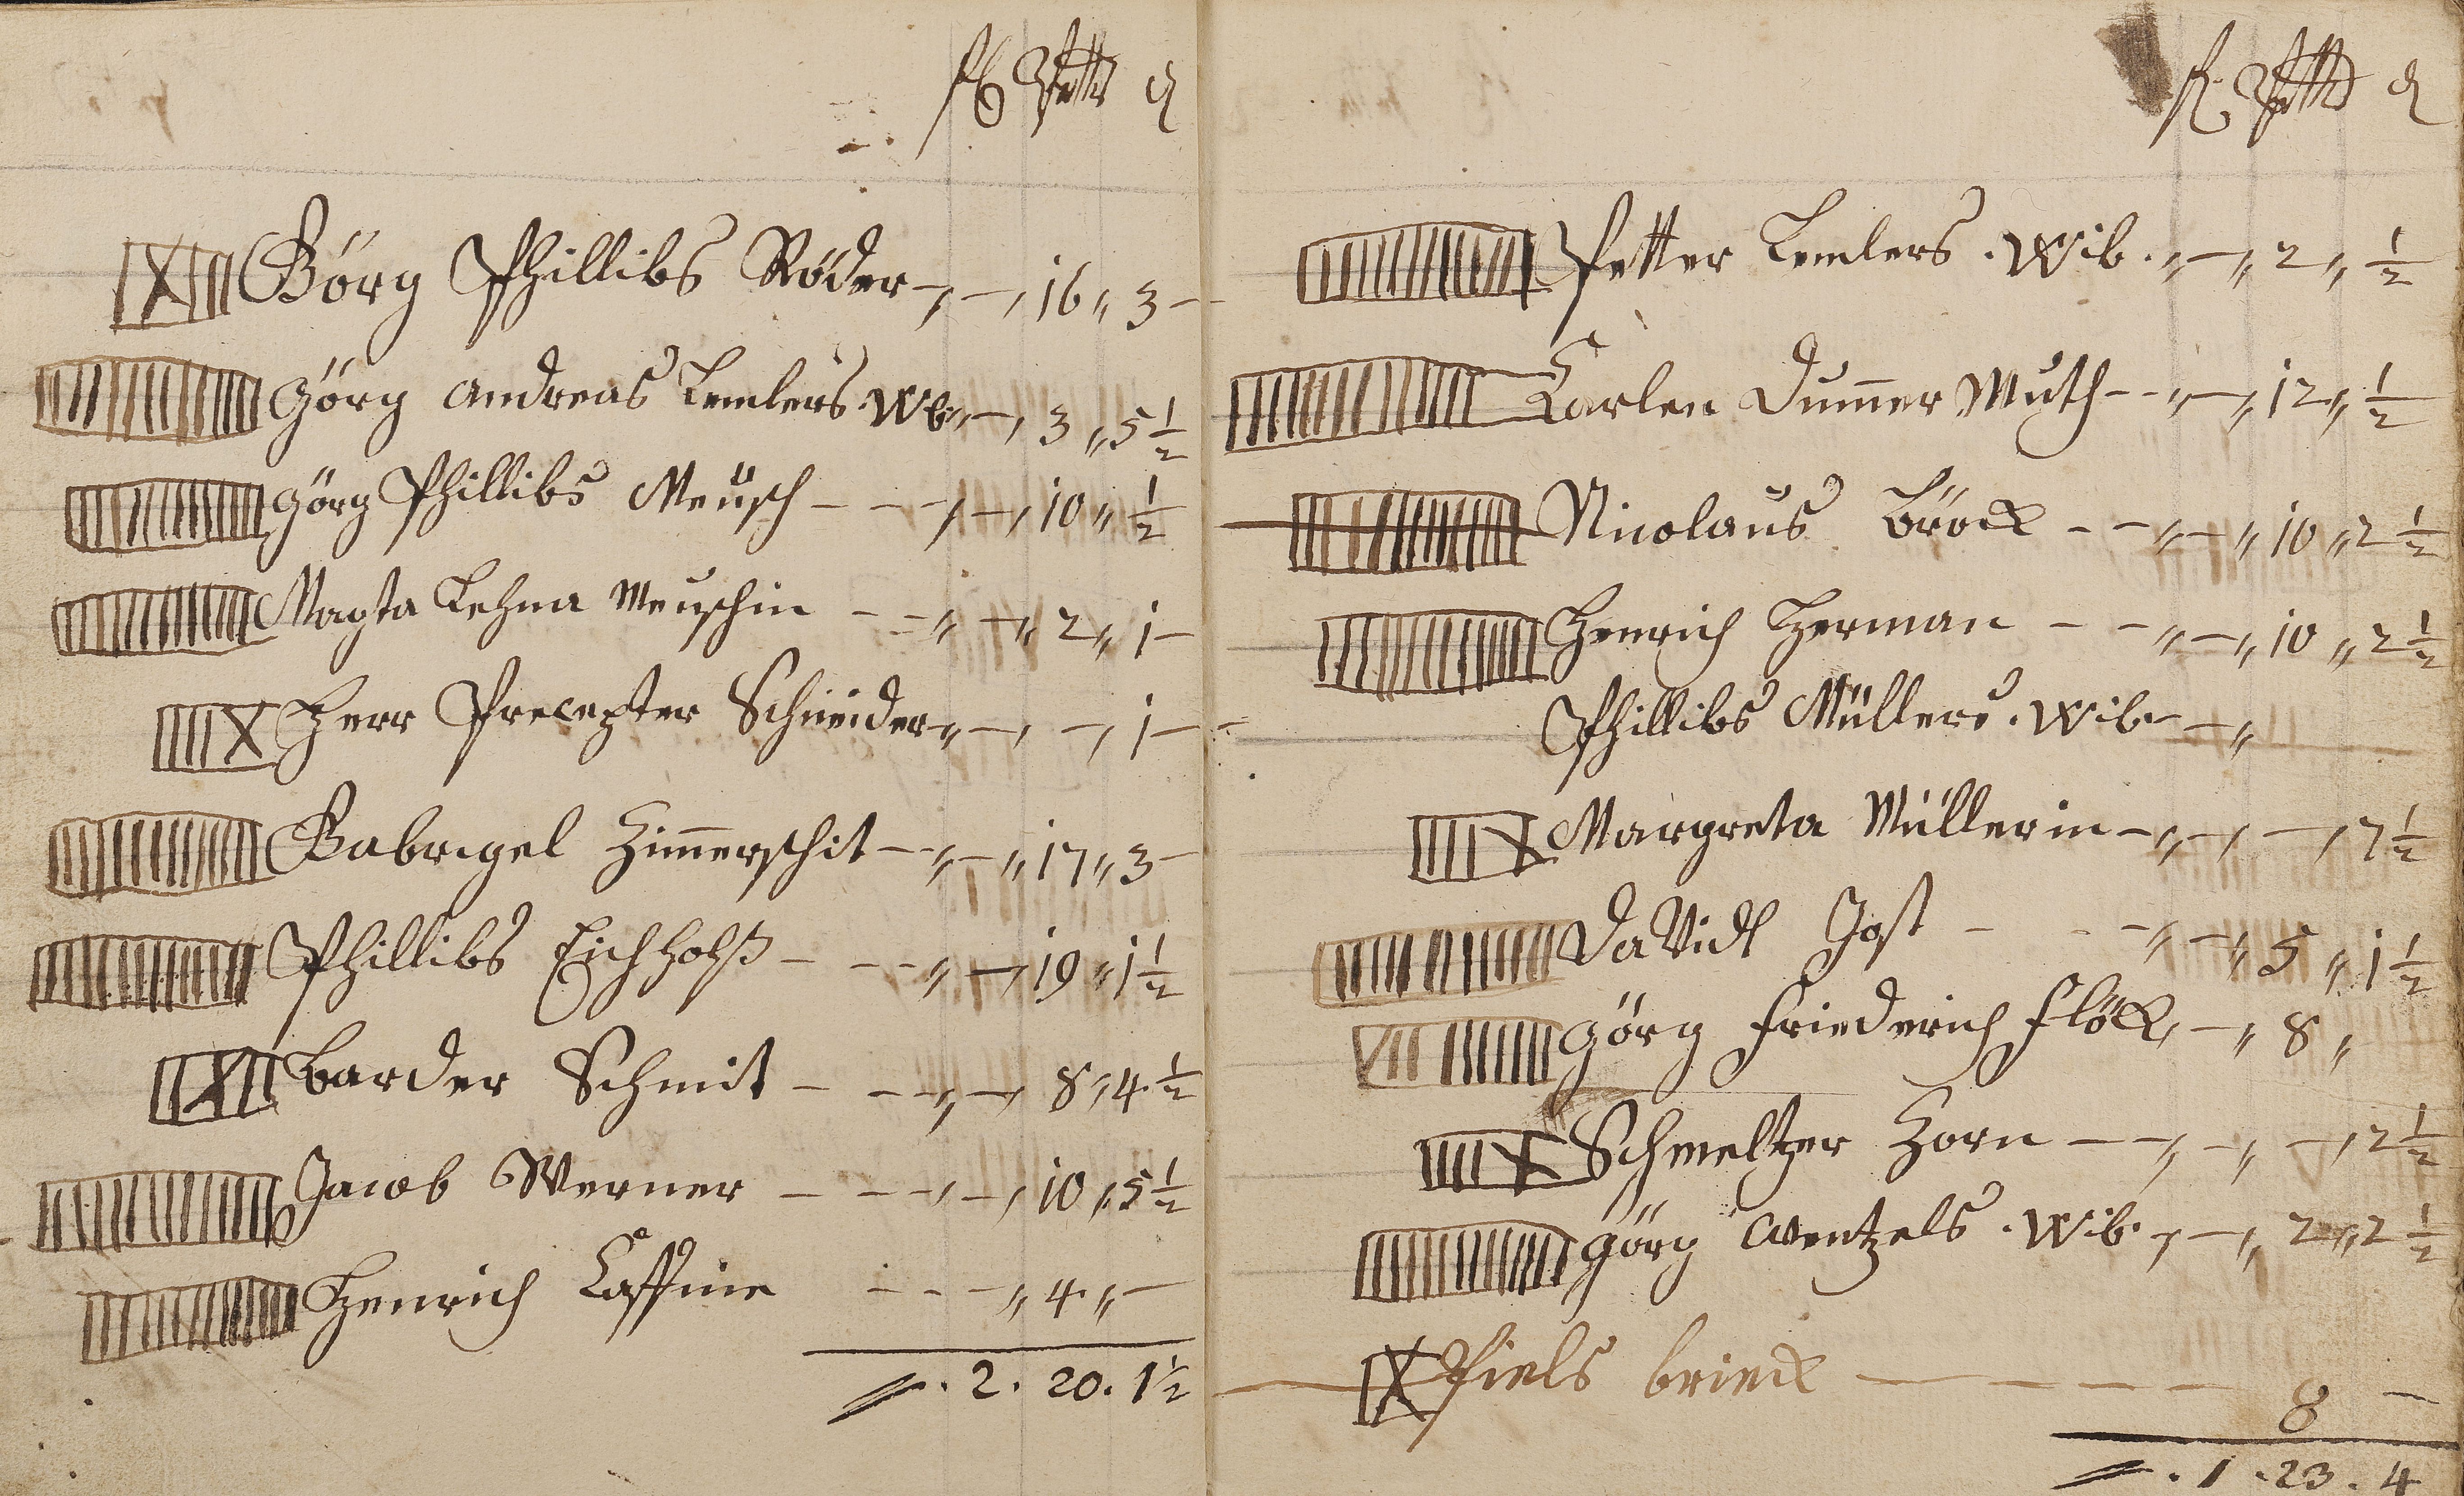 fl Patz d
Görg Phillibs Röder - - 16 " 3 -
Görg Andreas Lemlers Wb " - 3 " 5 1/2
Görg Phillibs Meüsch - - - 10 " 1/2
Magta Lehna Meuschin - - " - " 2 " 1 -
Herr Precepter Schneider " - - 1 -
Gabrigel Zimmerschit - " - " 17 " 3 -
Phillibs Eichholß - - - " - 19 " 1 1/2
Barder Schmit - - - - 8 " 4 1/2
Jacob Werner - - - - 10 " 5 1/2
Henrich Caffine - - - " 4 " -
2. 20. 1 1/2
fl. Patz d
Petter Lemlers. Wib. " - " 2 " 1/2
Carlen Dum̅er Muth - - " - " 12 " 1/2
Nicolaus Bröck - - " - " 10 " 2 1/2
Henrich Herman - - " - " 10 " 2 1/2
Phillibs Müllers. Wib - - "
Margreta Müllerin - " - - 7 1/2
DaVidt Jost - - - " - " 5 " 1 1/2
Görg Friederich Flöck - " 8 "
Schmeltzer Horn - - " - " - 2 1/2
Görg Wentzels. Wib. - - " 2 " 2 1/2
Piels brieck - - - - 8 -
. 1 . 23 . 4